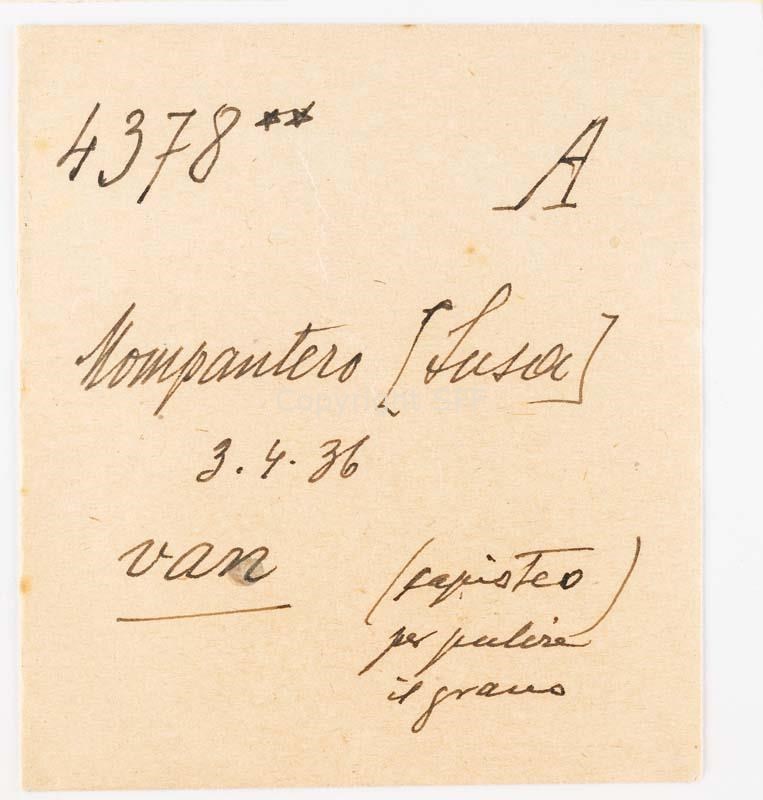 4378** A
Mompantero [Susa]
3.4.36
van (capisteo)
per pulire
il grano